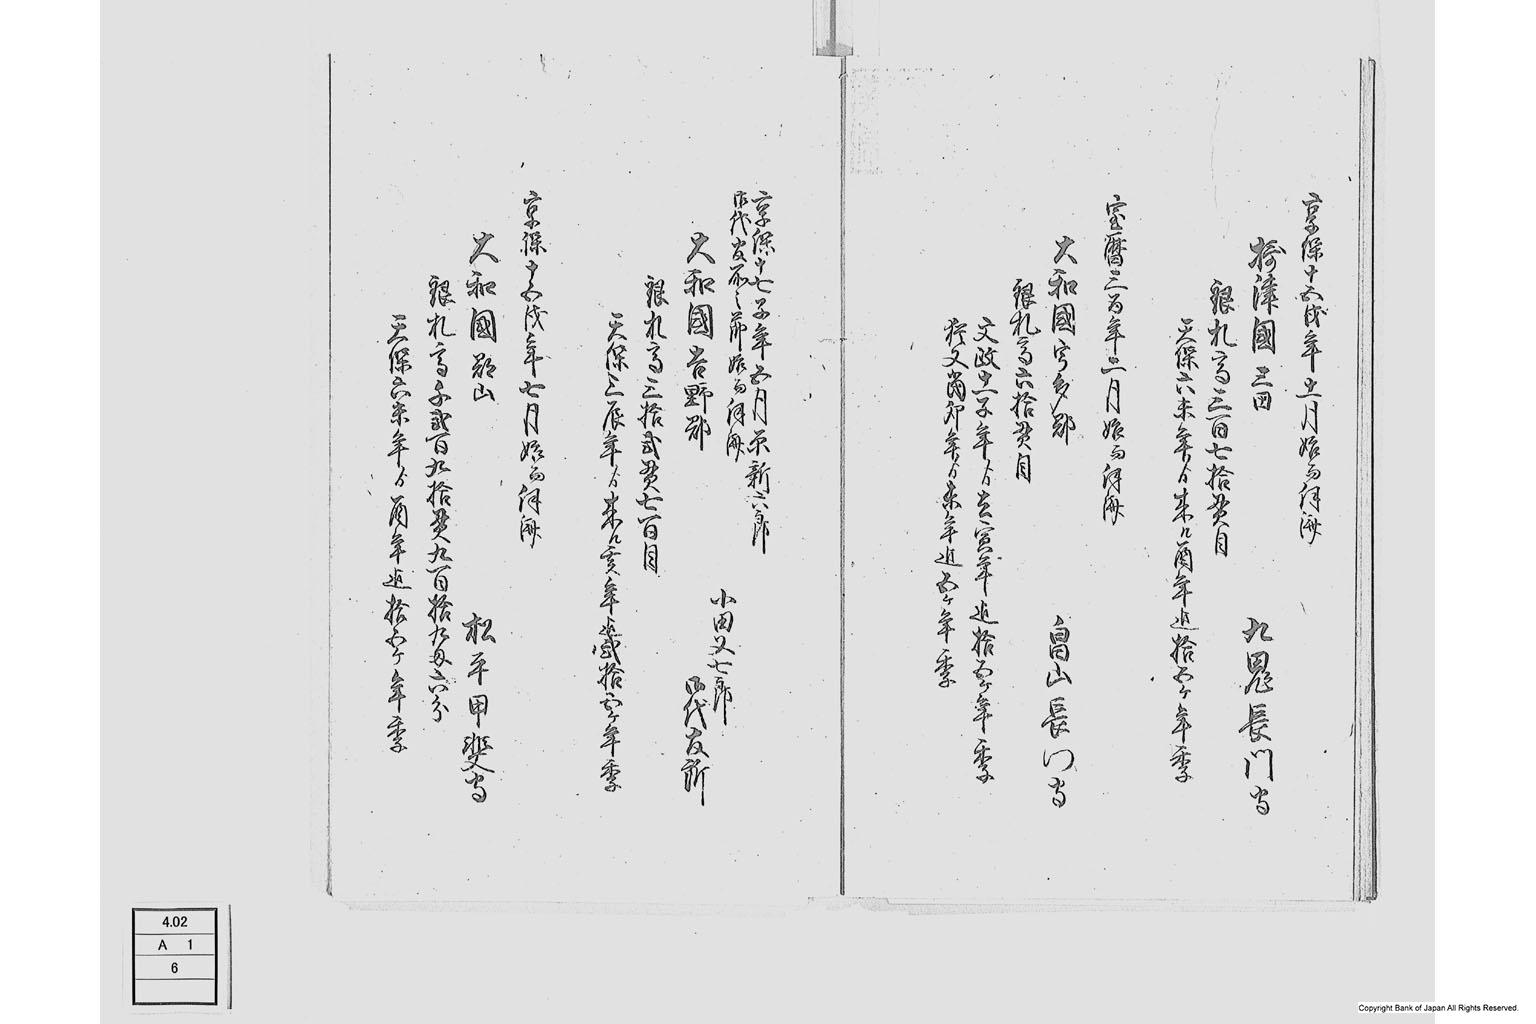 享保十五戌年十一月始而伺済
摂津國三田
九鬼長門守
銀札高三百七拾貫目
天保六未年ゟ来ル酉年迄拾五ヶ年季
宝暦三酉年十二月始而伺済
大和國宇多郡
畠山長門守
銀札高六拾貫目
文政十一子年ゟ去寅年迄拾五ヶ年季
猶又当卯年ゟ未年迄五ヶ年季
享保十七子年五月原新六郎
御代官所之節始而伺済
小田又七郎
御代官所
大和國吉野郡
銀札高三拾弐貫七百目
天保三辰年ゟ来ル亥年迄弐拾五ヶ年季
享保十五戌年七月始而伺済
大和國郡山
松平甲斐守
銀札高千弐百九拾貫九百拾九匁六分
天保六未年ゟ酉年迄拾五ヶ年季
4.02
A 1
6
Copyright Bank of Japan All Rights Reserved.